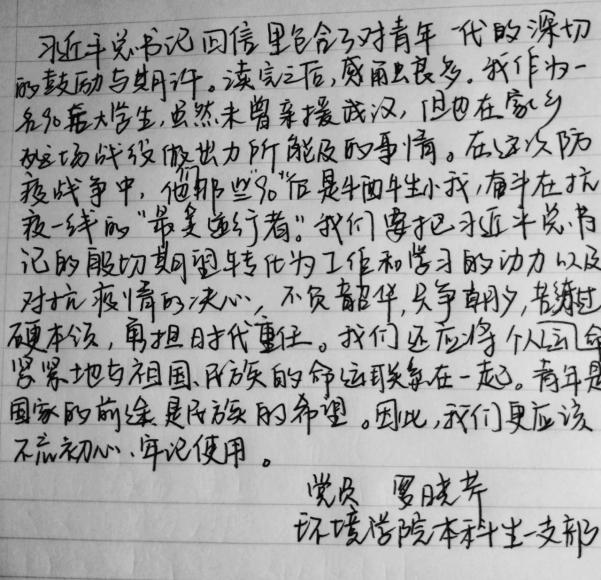 习近平总书记回信里包含了对青年一代的深切
的鼓励与期许。读完之后,感触良多。我作为一
名90后大学生,虽然未曾亲援武汉,但也在家乡
为这场战役做出力所能及的事情。在这次防
疫战争中,他们那些“90”后是牺牲小我,奋斗在抗
疫一线的“最美逆行者”。我们要把习近平总书
记的殷切期望转化为工作和学习的动力以及
对抗疫情的决心,不负韶华,只争朝夕,苦练过
硬本领,勇担时代重任。我们还应将个人命运
紧紧地与祖国、民族的命运联系在一起。青年是
国家的前途是民族的希望。因此,我们更应该
不忘初心、牢记使用。
党员 罗晓芹
环境学院本科生一支部